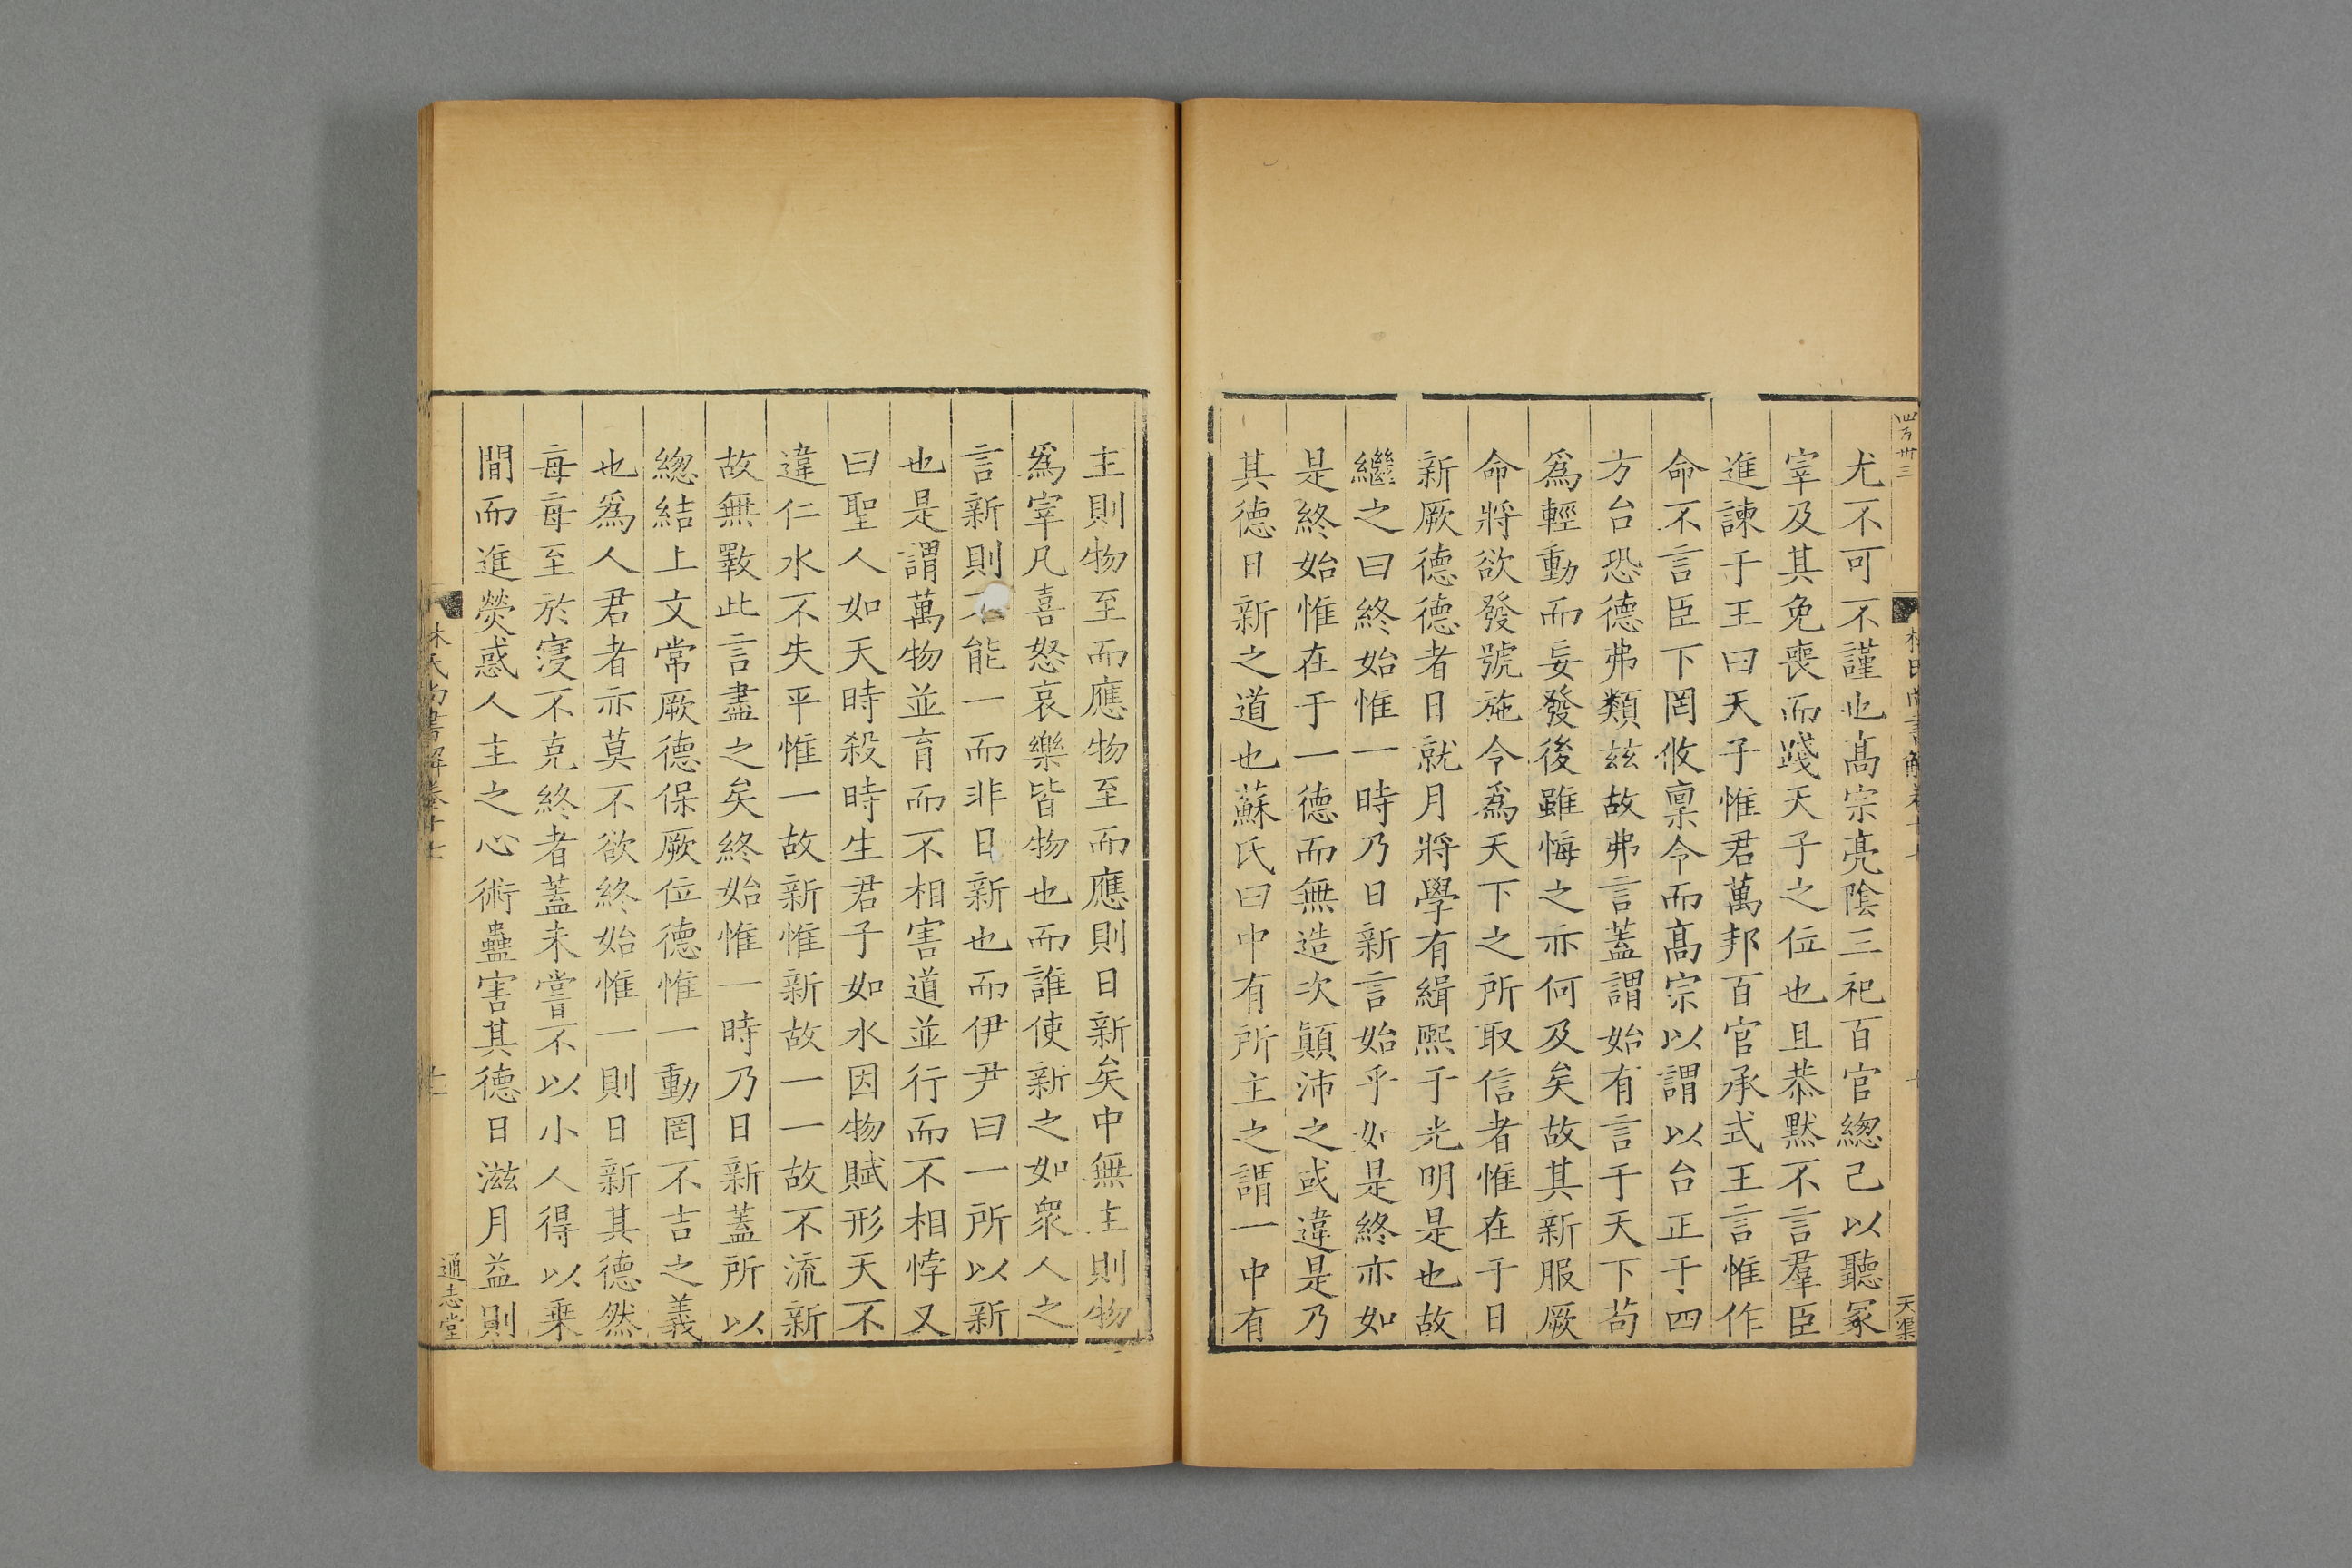 尤不可不謹也髙宗亮陰三祀百官緫己以聽冢
宰及其免喪而踐天子之位也且恭黙不言羣臣
進諫于王曰天子惟君萬邦百官承式王言惟作
命不言臣下罔攸禀令而髙宗以謂以台正于四
方台恐德弗類兹故弗言蓋謂始有言于天下苟
爲輕動而妄發後雖悔之亦何及矣故其新服厥
命將欲發號施令爲天下之所取信者惟在于日
新厥德德者日就月將學有緝熙于光明是也故
繼之曰終始惟一時乃日新言始乎如是終亦如
是終始惟在于一德而無造次顛沛之或違是乃
其德日新之道也蘇氏曰中有所主之謂一中有
主則物至而應物至而應則日新矣中無主則物
爲宰凡喜怒哀樂皆物也而誰使新之如衆人之
言新則不能一而非日新也而伊尹曰一所以新
也是謂萬物並育而不相害道並行而不相悖又
曰聖人如天時殺時生君子如水因物賦形天不
違仁水不失平惟一故新惟新故一一故不流新
故無斁此言盡之矣終始惟一時乃日新蓋所以
緫結上文常厥德保厥位德惟一動罔不吉之義
也爲人君者亦莫不欲終始惟一則日新其德然
每每至於寖不克終者蓋未嘗不以小人得以乗
間而進熒惑人主之心術蠱害其德日滋月益則
林氏尚書解卷十七
十一
通志堂